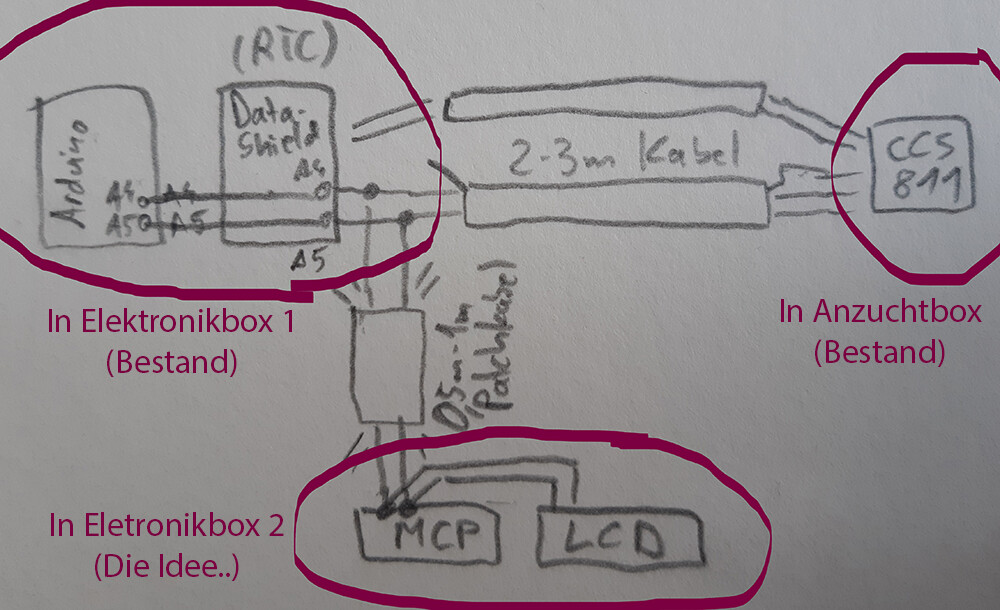 (RTC)
Arduino
A4
A5
A4
A5
Data-
Shield
A4
A5
2-3m Kabel
CCS
811
In Elektronikbox 1
(Bestand)
In Anzuchtbox
(Bestand)
0,5m-1m
Patchkabel
In Eletronikbox 2
(Die Idee..)
MCP
LCD